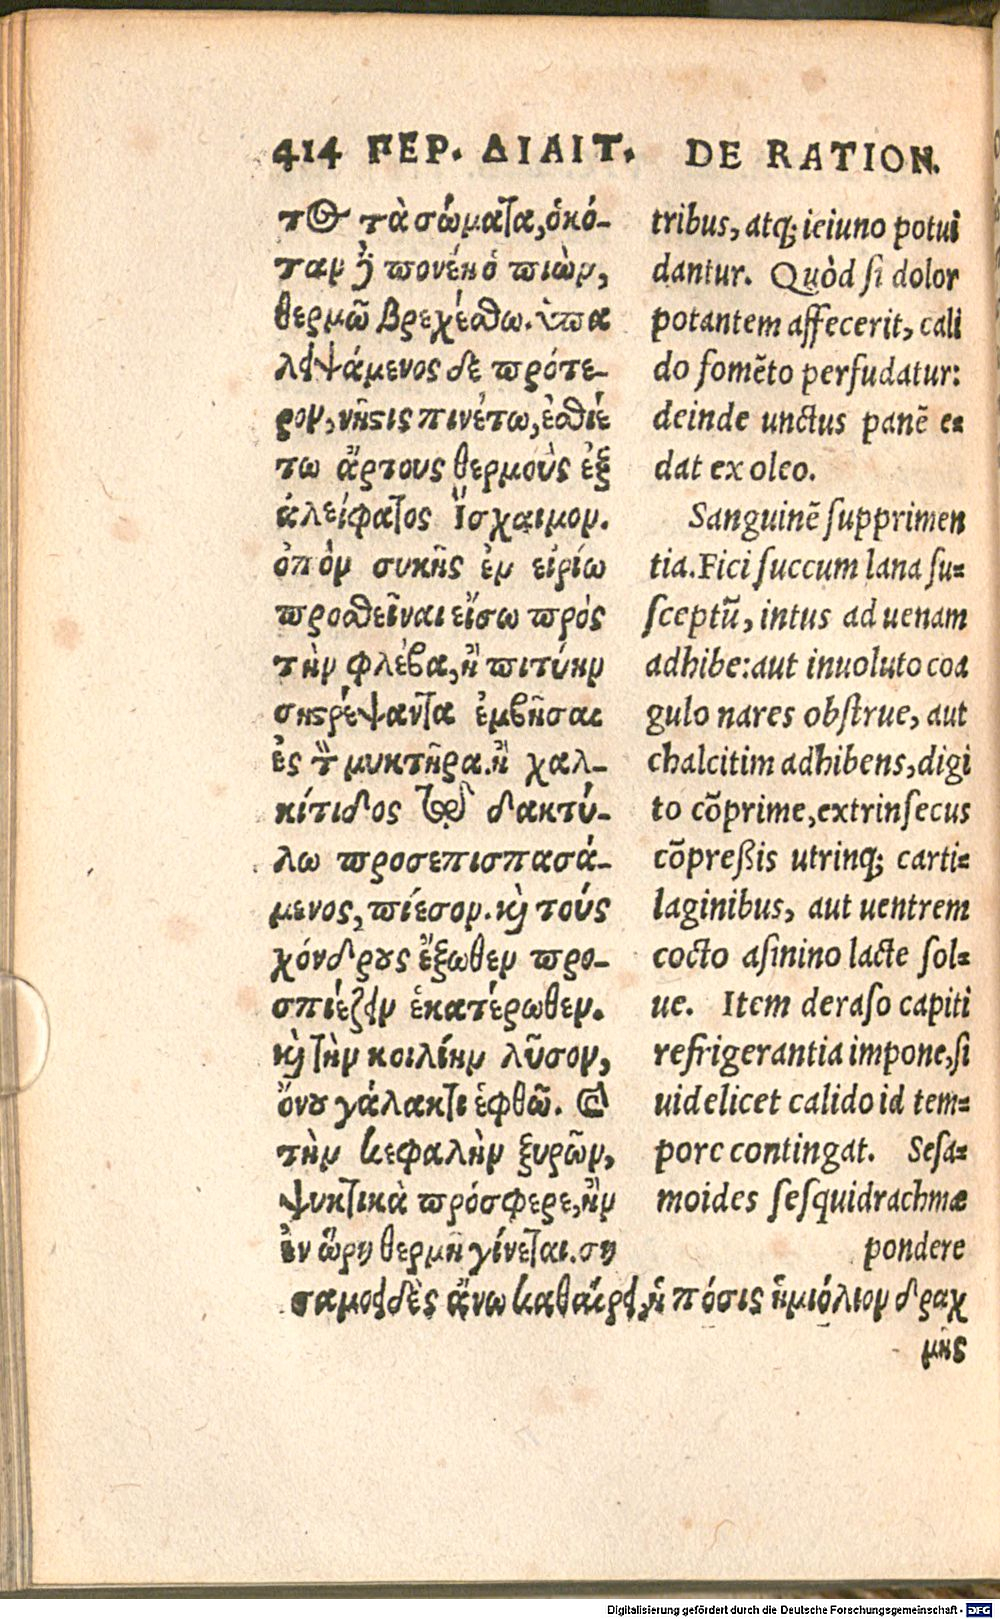 414 ΠΕΡ. ΔΙΑΙΤ. DE RATION.
τος τὰ σώματα, ὁκό-
ταν ἢ πονέῃ ὁ πιὼν,
θερμῶ βρεχέσθω. ὑπα
λειψάμενος δὲ πρότε-
ρον, νῆστις πινέτω, ἐσθιέ
τω ἄρτους θερμοὺς ἐξ
ἀλείφατος Ἴσχαιμον.
ὀπὸν συκῆς ἐν εἰρίω
προσθεῖναι εἴσω πρὸς
τὴν φλέβα, ἢ πιτύην
συστρέψαντα ἐμβῆσαι
ἐς τὸν μυκτῆρα. ἢ χαλ-
κίτιδος τῷ δακτύ-
λω προσεπισπασά-
μενος, πίεσον. καὶ τοὺς
χόνδρους ἔξωθεν προ-
σπιέζειν ἑκατέρωθεν.
καὶ τὴν κοιλίην λῦσον,
ὄνου γάλακτι ἑφθῶ. καὶ
τὴν κεφαλὴν ξυρῶν,
ψυκτικὰ πρόσφερε, ἢν
ἐν ὥρῃ θερμῇ γίνεται. ση
σαμοειδὲς ἄνω καθαίρει, ἡ πόσις ἡμιόλιον δραχ
μῆς
tribus, atq; ieiuno potui
dantur. Quòd si dolor
potantem affecerit, cali
do fomẽto perfudatur:
deinde unctus panẽ e-
dat ex oleo.
Sanguinẽ supprimen
tia. Fici succum lana su-
sceptũ, intus ad uenam
adhibe: aut inuoluto coa
gulo nares obstrue, aut
chalcitim adhibens, digi
to cõprime, extrinsecus
cõpreßis utrinq; carti-
laginibus, aut uentrem
cocto asinino lacte sol-
ue. Item deraso capiti
refrigerantia impone, si
uidelicet calido id tem-
pore contingat. Sesa-
moides sesquidrachmæ
pondere
Digitalisierung gefördert durch die Deutsche Forschungsgemeinschaft - DFG